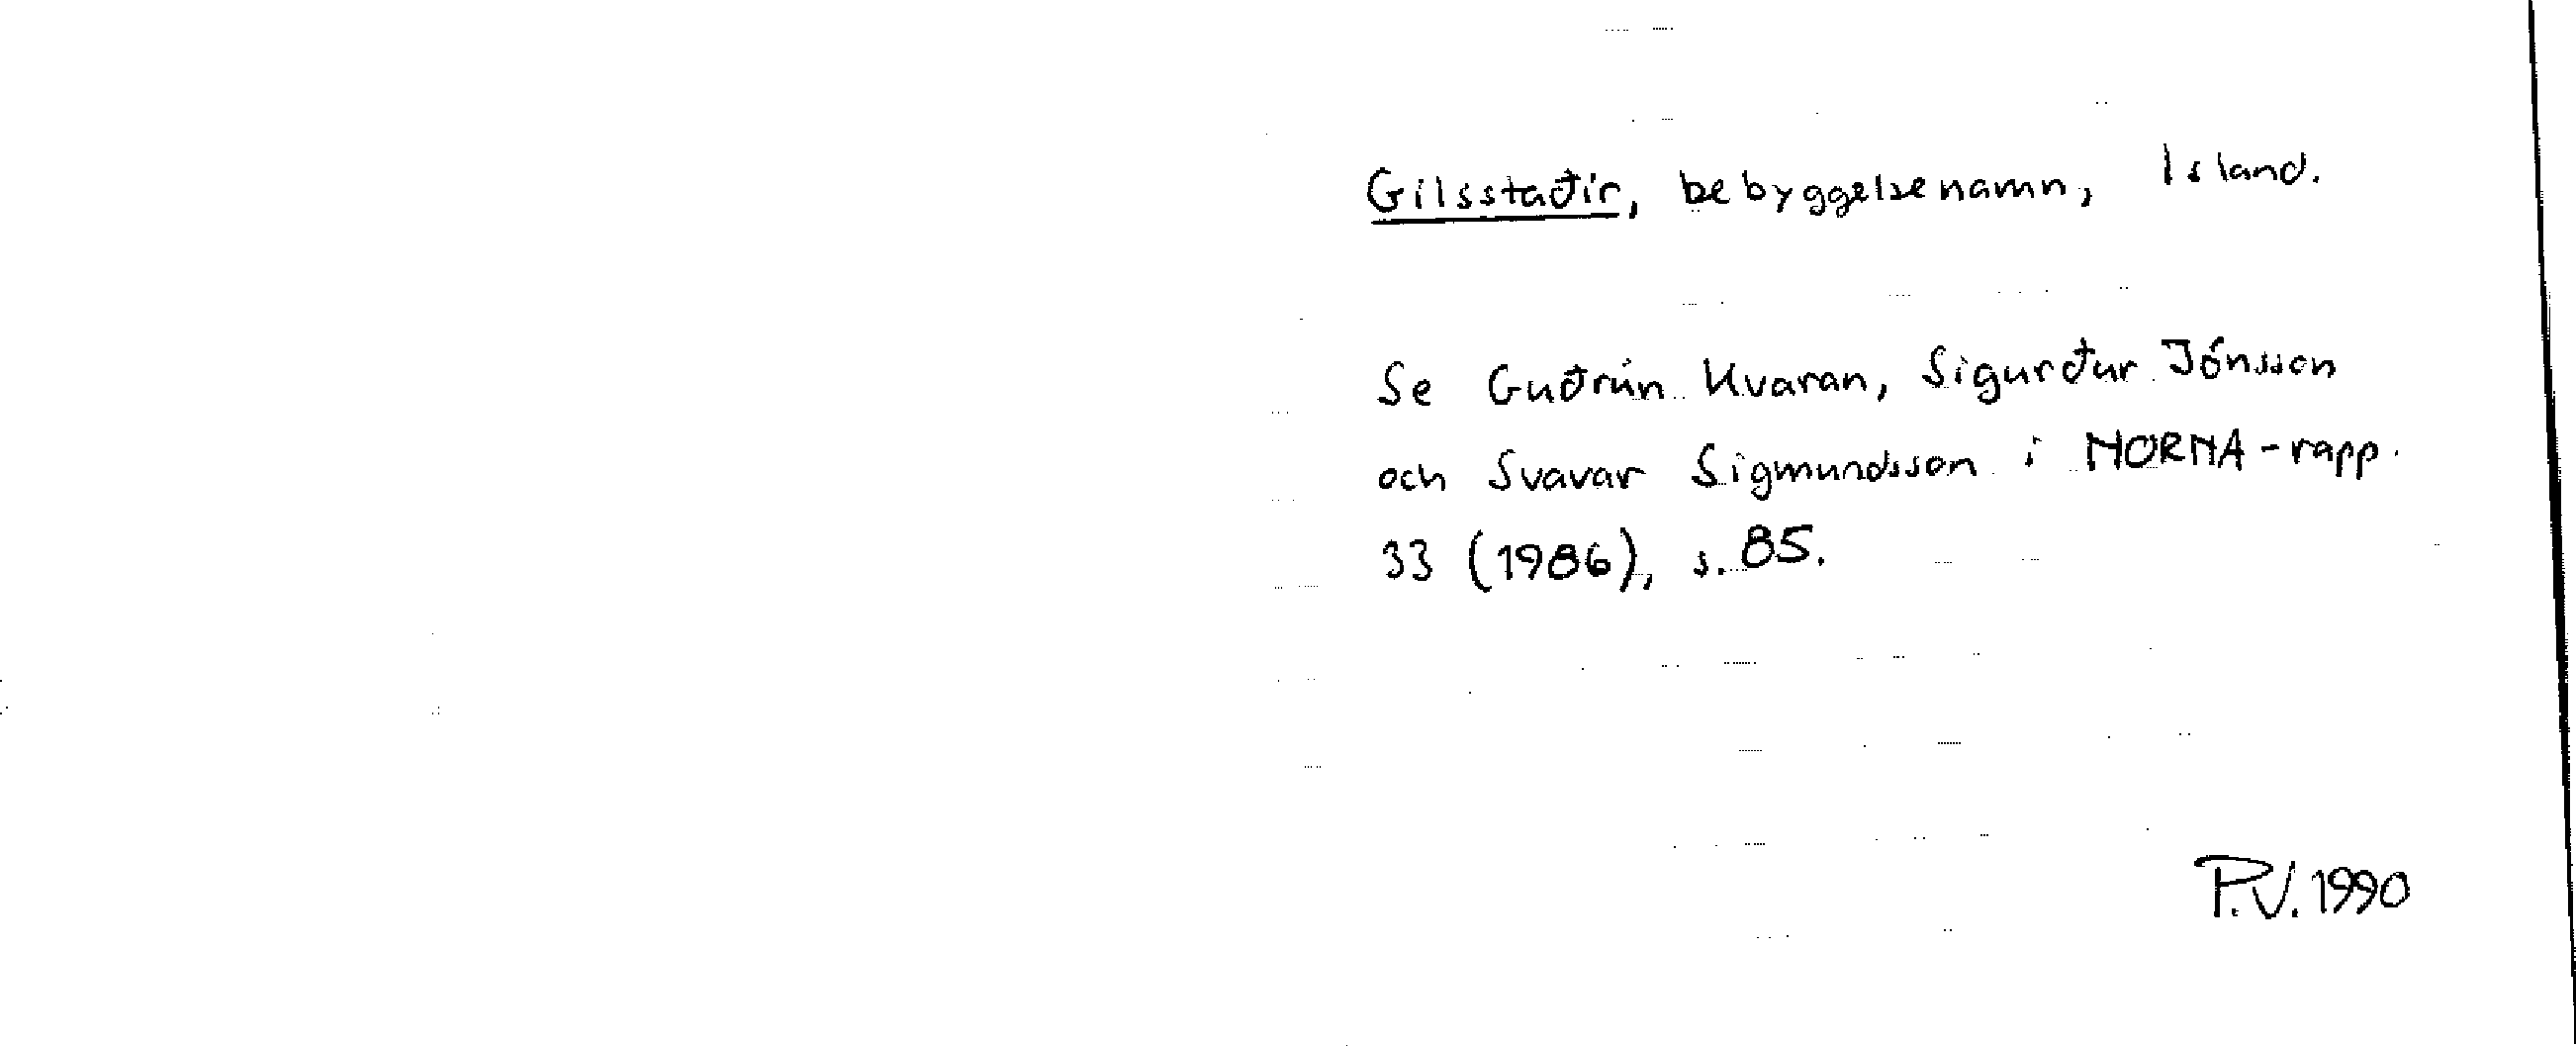 Gilsstaðir, bebyggelsenamn, Island.
Se Guðrún Kvaran, Sigurður Jónsson
och Svavar Sigmundsson i NORNA-rapp.
33 (1986), s. 85.
P.V. 1990